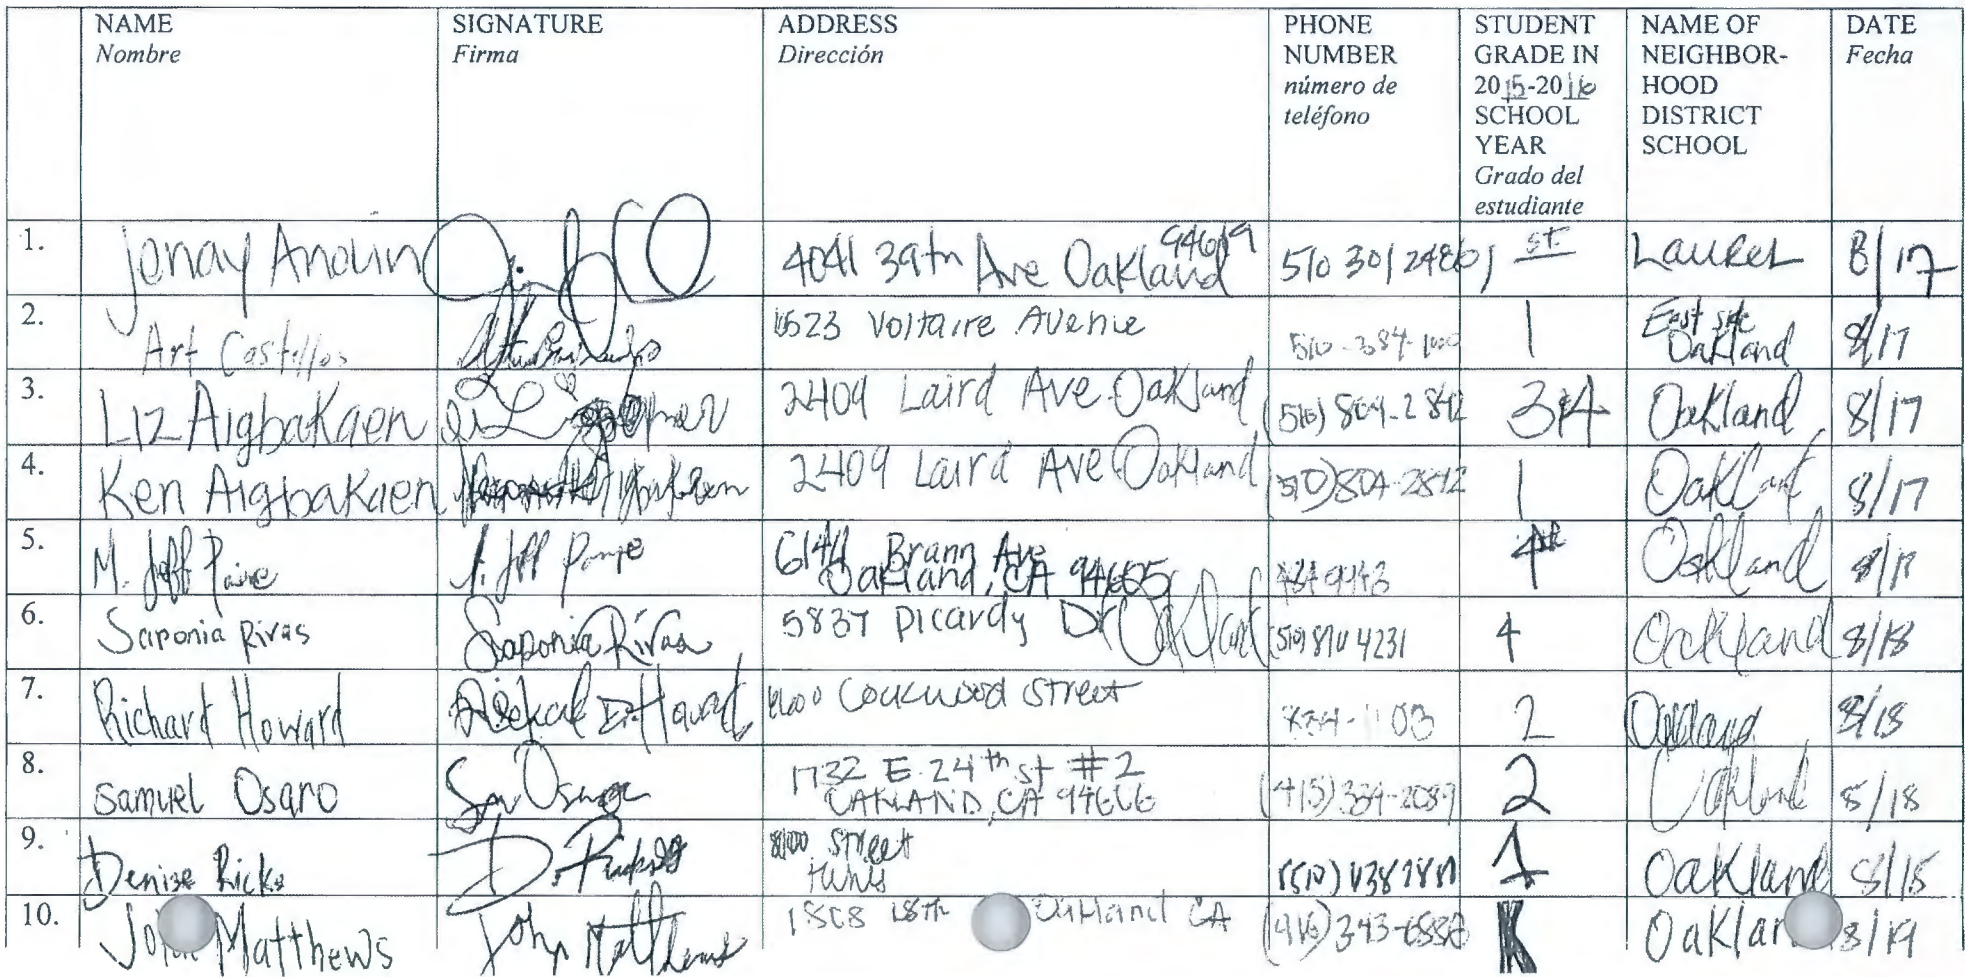 NAME
Nombre
SIGNATURE
Firma
ADDRESS
Dirección
PHONE
NUMBER
número de
teléfono
STUDENT
GRADE IN
2015-2016
SCHOOL
YEAR
Grado del
estudiante
NAME OF
NEIGHBOR-
HOOD
DISTRICT
SCHOOL
DATE
Fecha
1. Jenay 4041 39th Ave Oakland 94619 510 301 2486 1st Laurel 8/17
2. Art Castillos 6523 Voltaire Avenue 510-384- 1 East side Oakland 8/17
3. Liz Aigbakaen 2409 Laird Ave Oakland (510) 804-2812 34 Oakland 8/17
4. Ken Aigbakaen 2409 Laird Ave Oakland (510) 804-2812 1 Oakland 8/17
5. M. Jeff Paine 6144 Brann Ave
Oakland, CA 94605 4th Oakland
6. Saponia Rivas Saponia Rivas 5837 Picardy Dr Oakland (510) 4231 4 Oakland 8/18
7. Richard Howard Howard Street 2 Oakland 8/18
8. Samuel Osaro 1732 E. 24th st #2
OAKLAND, CA 94606 (415) 2 Oakland /18
9. Denise Ricks Street (510) 1 Oakland
10. Matthews John Matthews 18th Oakland CA 343- K 8/19